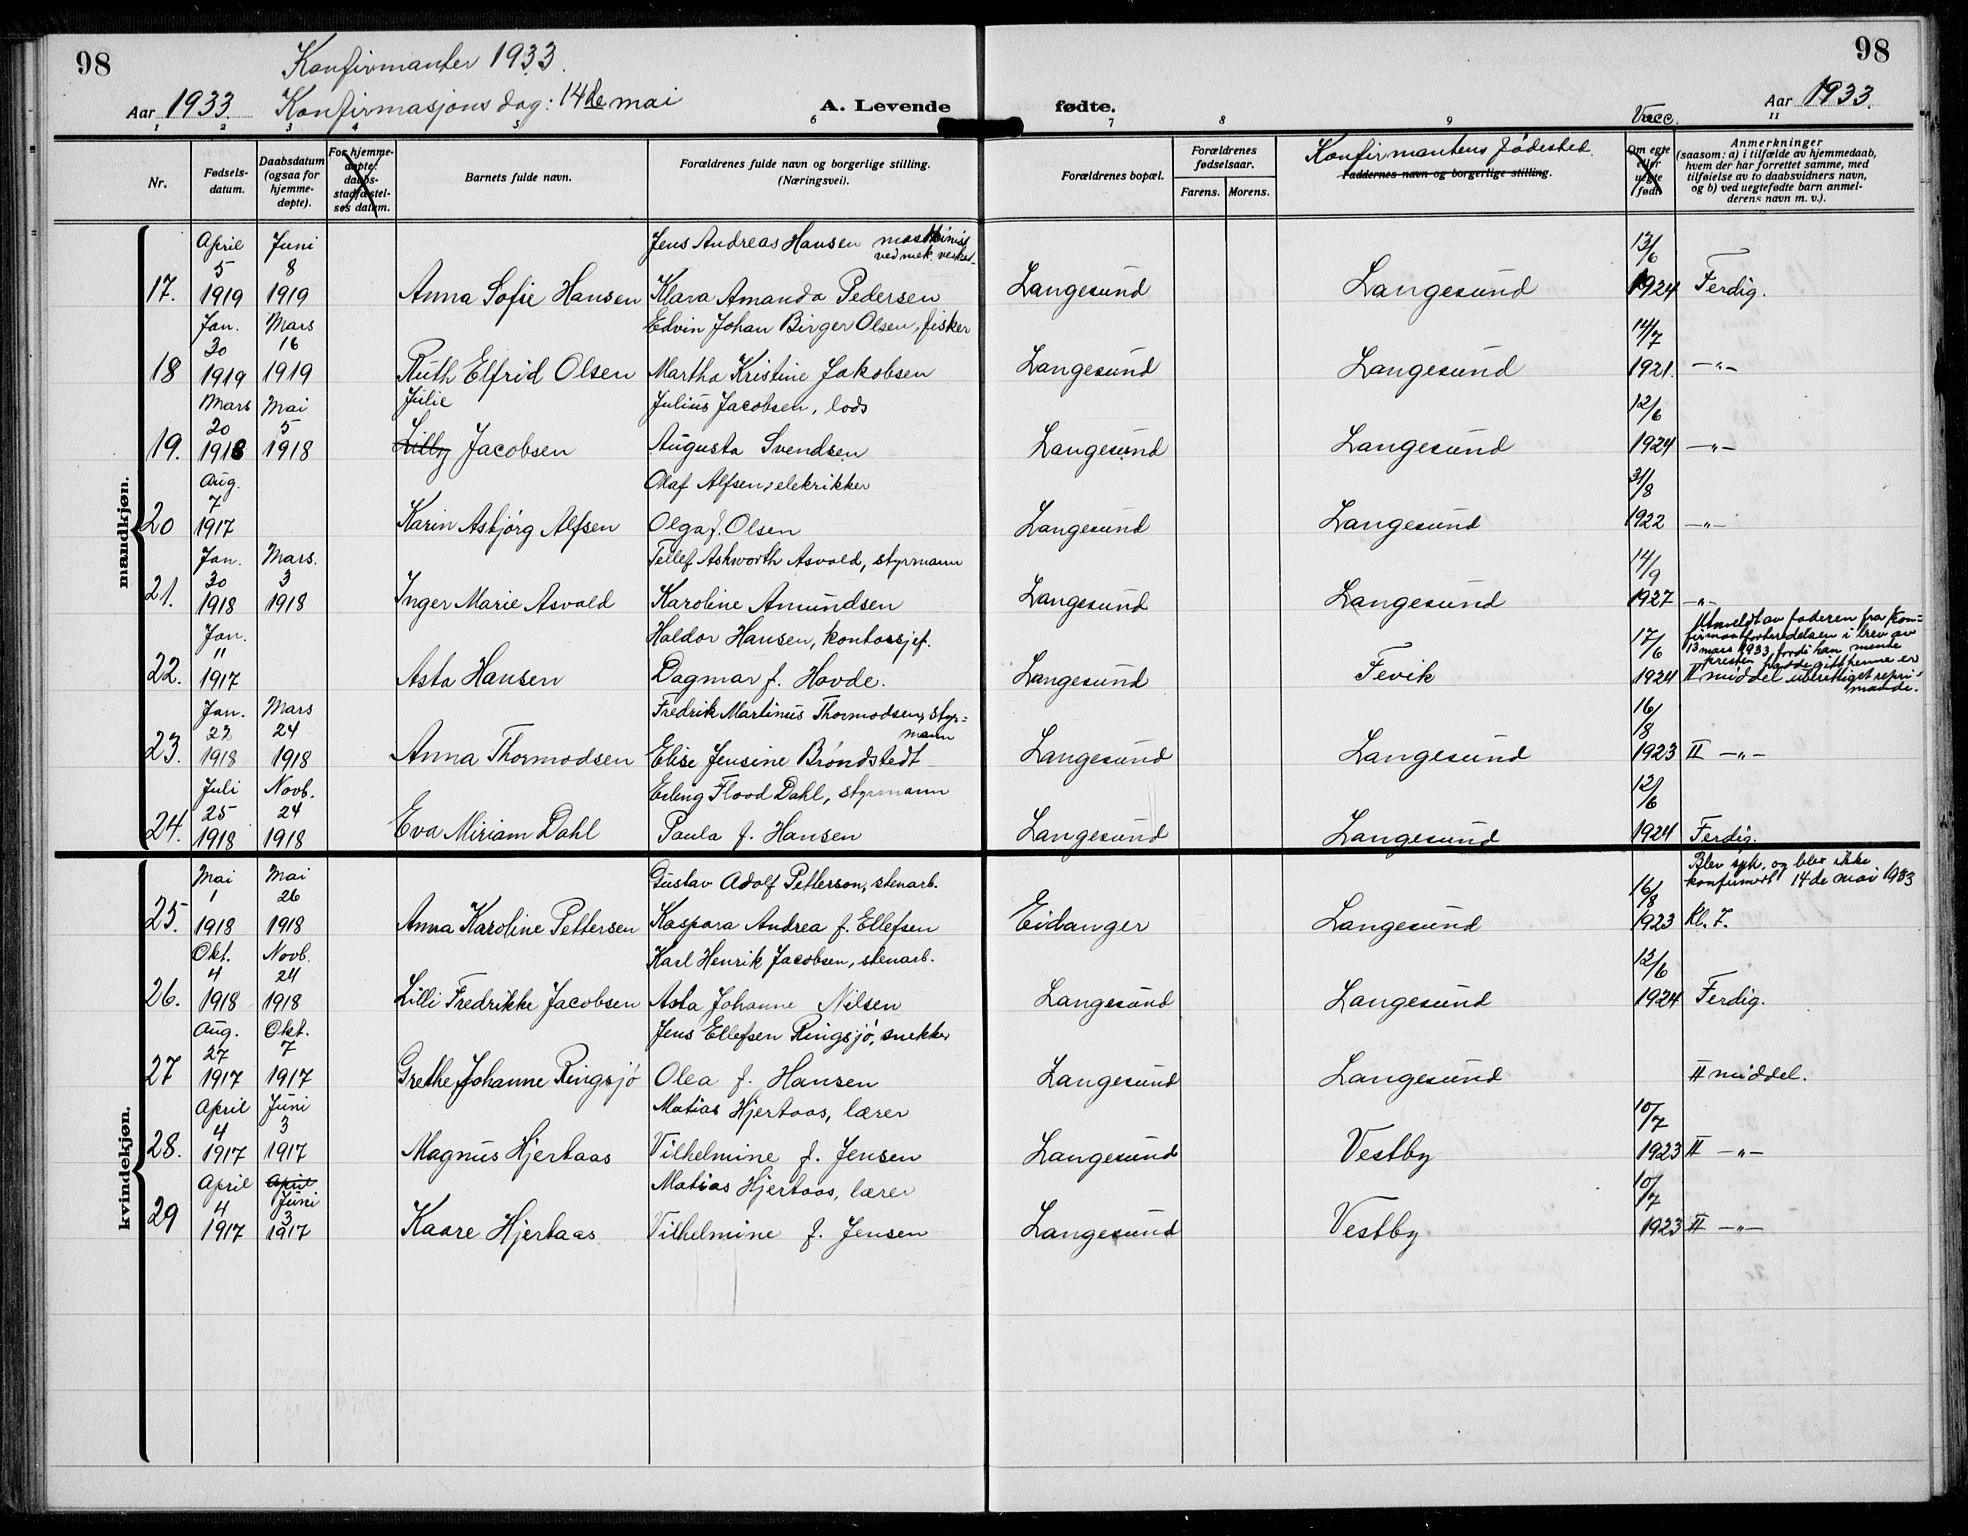 98
Konfirmanter 1933.
Aar 1933. Konfirmasjons dag: 14de mai
A. Levende fødte.
Vacc.
98
Aar 1933.
1 2 3 4 5 6 7 8 9 11
Nr.
Fødsels-
datum.
Daabsdatum
(ogsaa for
hjemme-
døpte).
For hjemme-
døpte:
daabs-
stadfæstel-
ses datum.
Barnets fulde navn.
Forældrenes fulde navn og borgerlige stilling.
(Næringsvei).
Forældrenes bopæl.
Forældrenes
fødselsaar.
Farens. Morens.
Konfirmantens fødested.
Faddernes navn og borgerlige stilling.
Om egte
eller
uegte
født.
Anmerkninger
(saasom: a) i tilfælde av hjemmedaab,
hvem der har forrettet samme, med
tilføielse av to daabsvidners navn,
og b) ved uegtefødte barn anmel-
derens navn m. v.).
mandkjøn.
April Juni Jens Andreas Hansen maskinist 13/6
5 8 ved mek. verkst.
17. 1919 1919 Anna Sofie Hansen Klara Amanda Pedersen Langesund Langesund 1924 Ferdig.
Jan. Mars Edvin Johan Birger Olsen, fisker 14/7
30 16
18 1919 1919 Ruth Elfrid Olsen Martha Kristine Jakobsen Langesund Langesund 1921. —„—
Mars Mai Julie Julius Jacobsen, lods 12/6
20 5
19. 1918 1918 Lilly Jacobsen Augusta Svendsen Langesund Langesund 1924 —„—
Aug. Olaf Alfsen, elekrikker 31/8
7
20 1917 Karin Asbjörg Alfsen Olga f. Olsen Langesund Langesund 1922 —„—
Jan. Mars. Tellef Ashworth Asvald, styrmann 14/9
30 3
21. 1918 1918 Inger Marie Asvald Karoline Amundsen Langesund Langesund 1927 —„—
Jan. Haldor Hansen, kontorsjef. 17/6 Utmeldt av faderen fra kon=
firmantforberedelsen i brev av
11 13 mars 1933, fordi han mente
presten hadde gitt henne en
22. 1917 Asta Hansen Dagmar f. Hovde. Langesund Fevik 1924 II middel uberettiget repri=
mande.
Jan. Mars Fredrik Martinus Thormodsen, styr= 16/8
22 24 mann
23. 1918 1918 Anna Thormodsen Elise Jensine Bröndstedt Langesund Langesund 1923 II —„—
Juli Novb. Erling Flood Dahl, styrmann 12/6
25 24
24. 1918 1918 Eva Miriam Dahl Paula f. Hansen Langesund Langesund 1924 Ferdig.
kvindekjøn.
Mai Mai Gustav Adolf Petterson, stenarb. 16/8 Blev syk, og blev ikke
1 26 konfirmert 14de mai 1933
25. 1918 1918 Anna Karoline Pettersen Kaspara Andrea f. Ellefsen Eidanger Langesund 1923 kl. 7.
Okt. Novb. Karl Henrik Jacobsen, stenarb. 12/6
4 24
26. 1918 1918 Lilli Fredrikke Jacobsen Asta Johanne Nilsen Langesund Langesund 1924 Ferdig.
Aug. Okt. Jens Ellefsen Ringsjö, snekker
27 7
27 1917 1917 Grethe Johanne Ringsjö Olea f. Hansen Langesund Langesund II middel.
April Juni Matias Hjertaas, lærer 10/7
4 3
28. 1917 1917 Magnus Hjertaas Vilhelmine f. Jensen Langesund Vestby 1923 II —„—
April April Matias Hjertaas, lærer 10/7
4 Juni
3
29 1917 1917 Kaare Hjertaas Vilhelmine f. Jensen Langesund Vestby 1923 II —„—